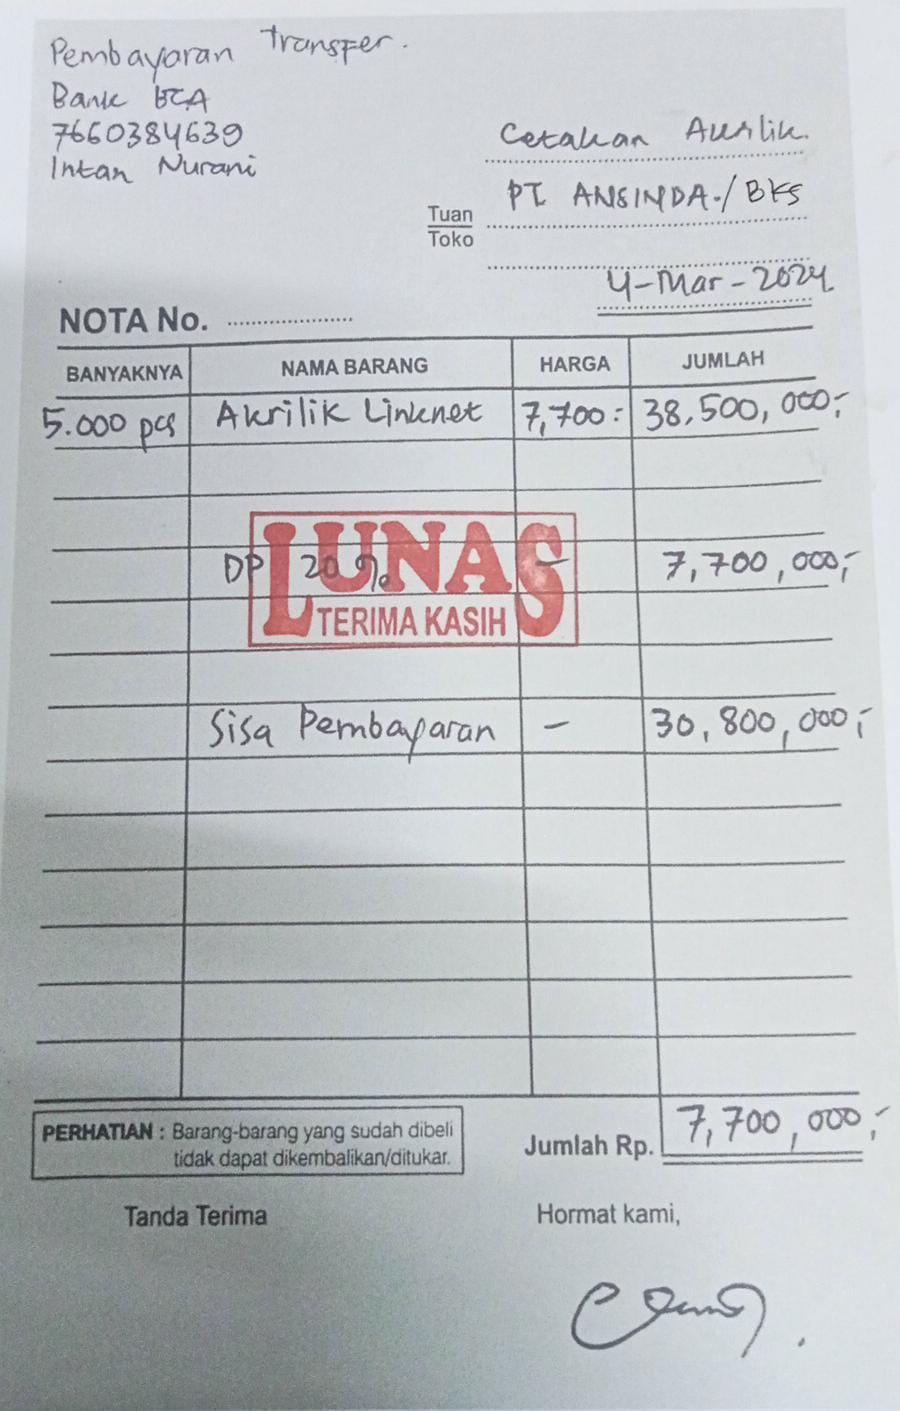 Pembayaran Transfer.
Bank BCA
7660384639
Intan Nurani
Cetakan Akrilik.
Tuan
Toko
PT ANSINDA-/BKS
4-Mar-2024
NOTA No. ....................
BANYAKNYA NAMA BARANG HARGA JUMLAH
5.000 pcs Akrilik Linknet 7,700:- 38,500,000,-
LUNAS
TERIMA KASIH
DP 20% - 7,700,000,-
Sisa Pembayaran - 30,800,000,-
PERHATIAN : Barang-barang yang sudah dibeli
tidak dapat dikembalikan/ditukar.
Jumlah Rp. 7,700,000,-
Tanda Terima Hormat kami,